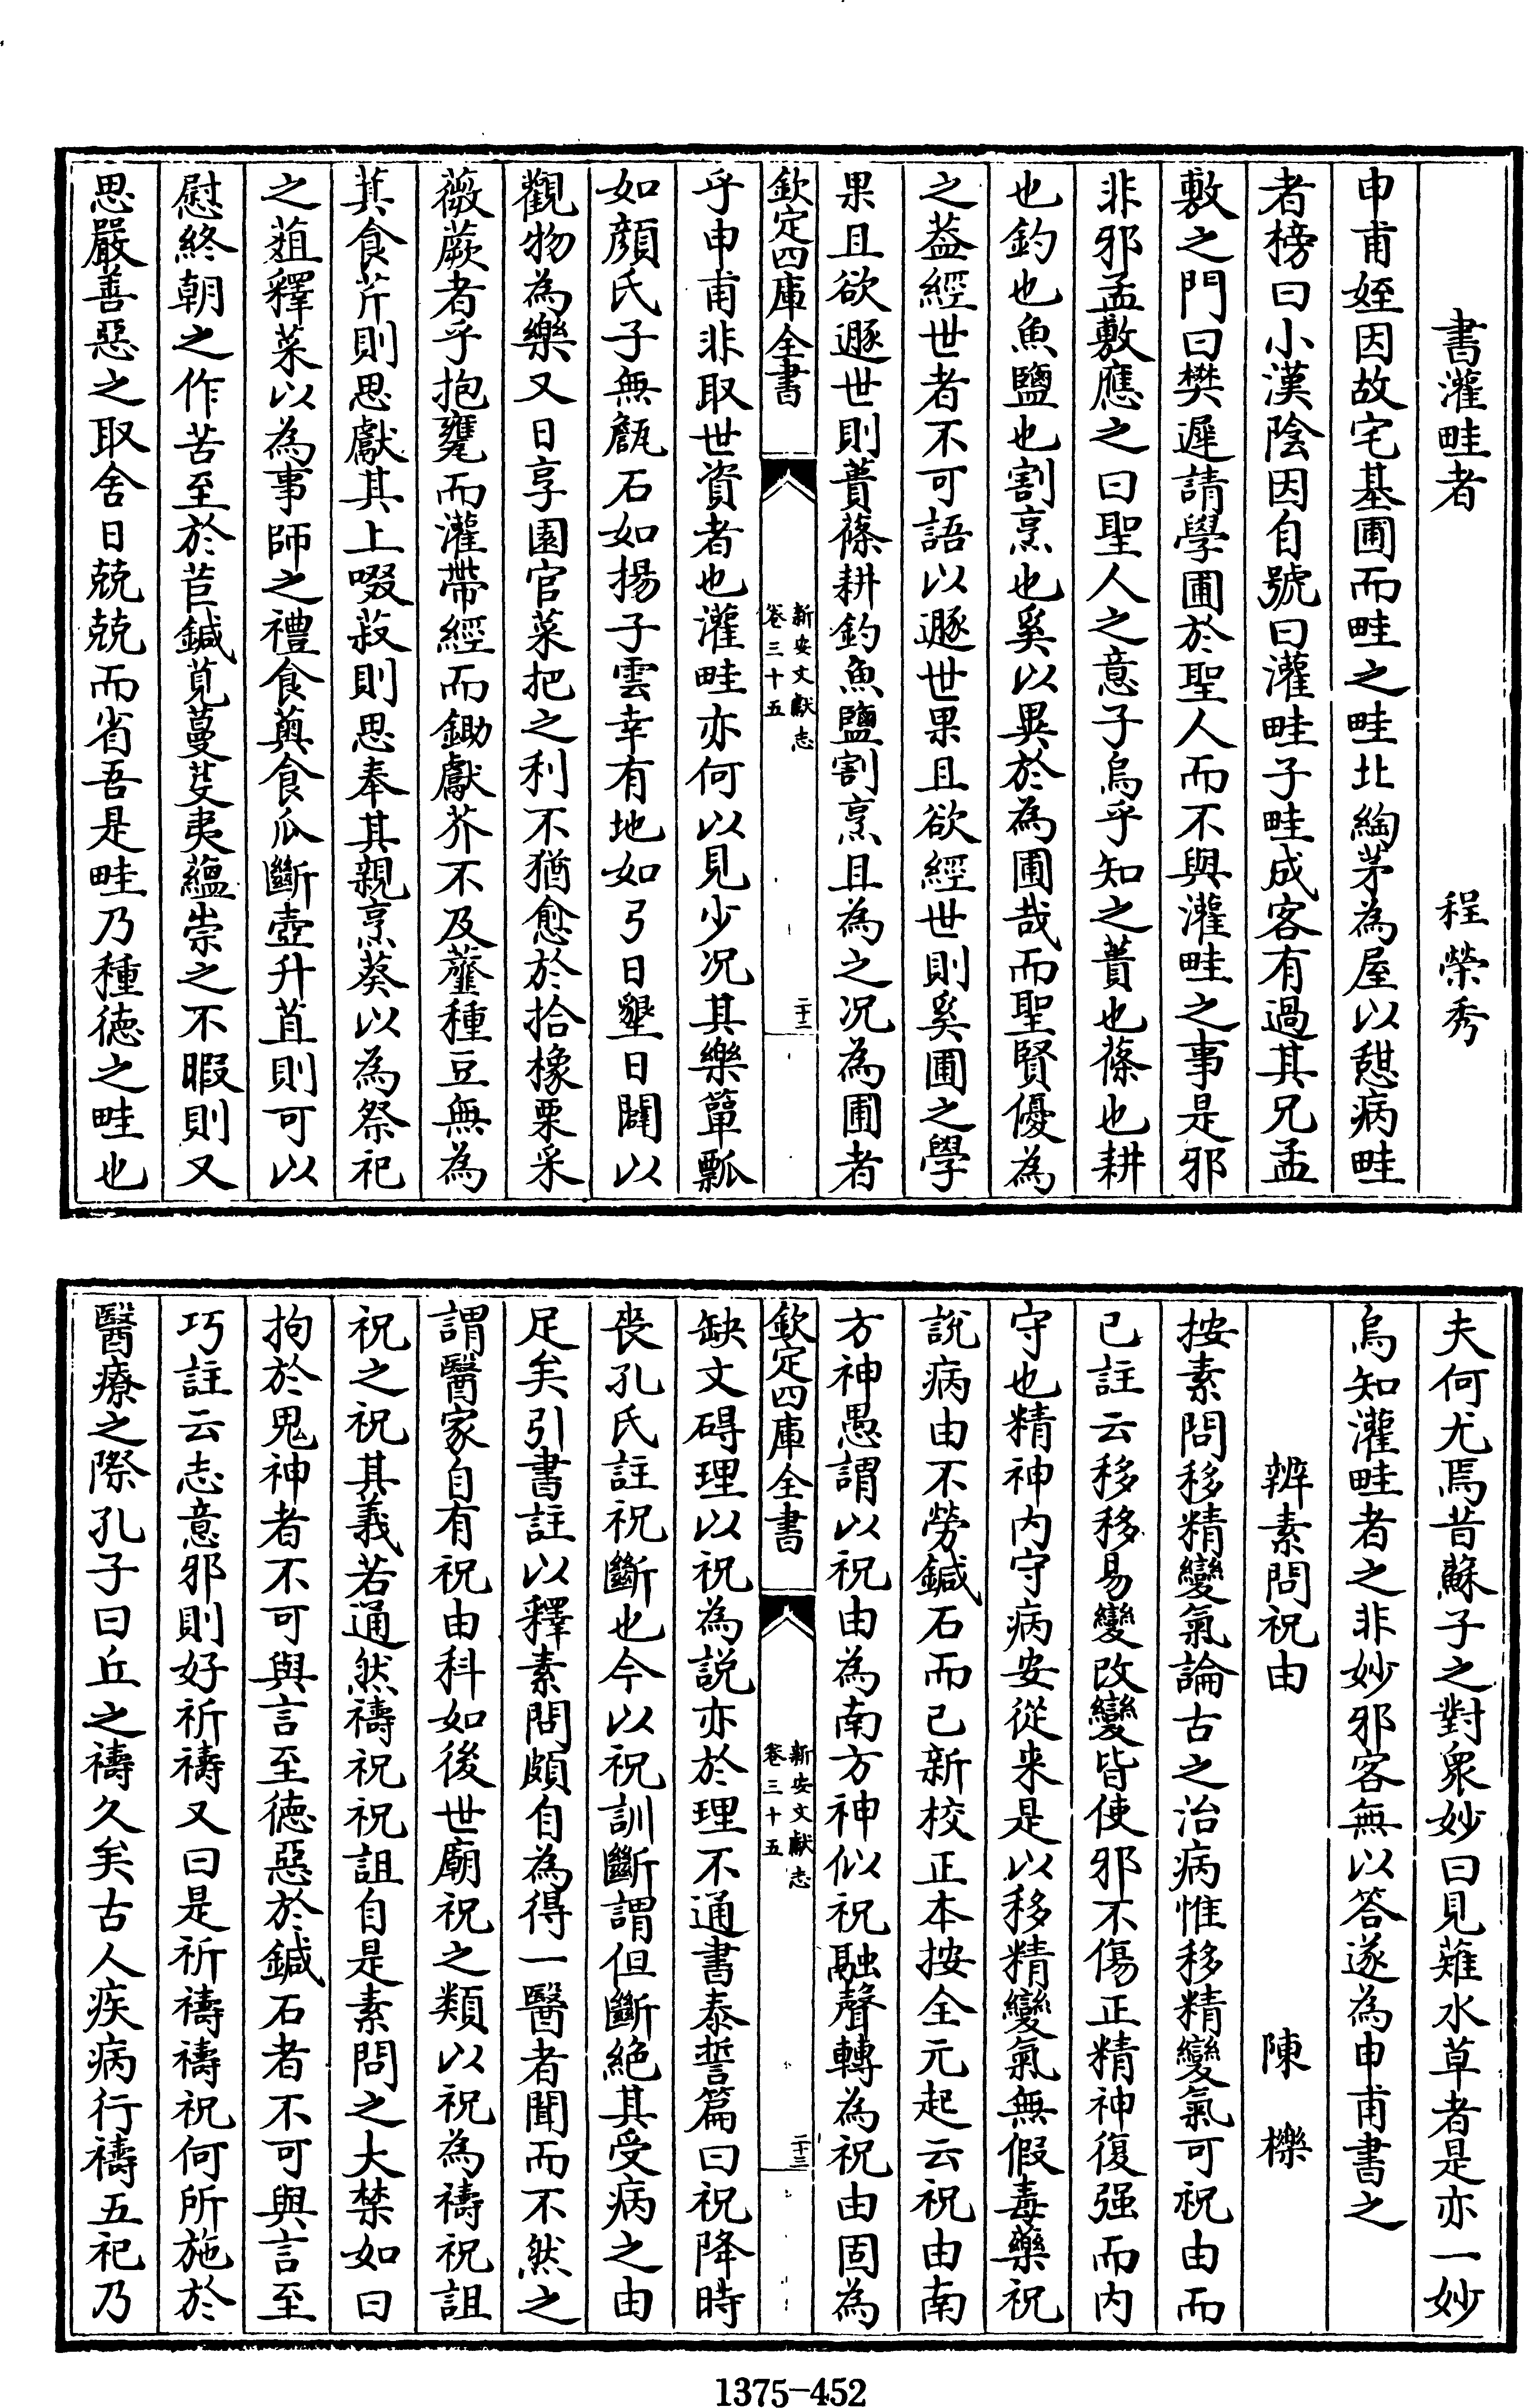 書灌畦者 程榮秀
申甫姪因故宅基圃而畦之畦北綯茅為屋以憇病畦
者榜曰小漢陰因自號曰灌畦子畦成客有過其兄孟
敷之門曰樊遲請學圃於聖人而不與灌畦之事是邪
非邪孟敷應之曰聖人之意子烏乎知之蕢也蓧也耕
也釣也魚鹽也割烹也奚以異於為圃哉而聖賢優為
之葢經世者不可語以遯世果且欲經世則奚圃之學
果且欲遯世則蕢蓧耕釣魚鹽割烹且為之况為圃者
欽定四庫全書
新安文獻志
卷三十五
二十二
乎申甫非取世資者也灌畦亦何以見少况其樂簞瓢
如顏氏子無甔石如揚子雲幸有地如弓日墾日闢以
觀物為樂又日享園官菜把之利不猶愈於拾橡栗采
薇蕨者乎抱甕而灌帶經而鋤獻芥不及薤種豆無為
萁食芹則思獻其上啜菽則思奉其親烹葵以為祭祀
之葅釋菜以為事師之禮食薁食瓜斷壺升苴則可以
慰終朝之作苦至於苣鍼莧蔓芟夷蘊崇之不暇則又
思嚴善惡之取舍日兢兢而省吾是畦乃種德之畦也
夫何尤焉昔蘇子之對衆妙曰見薙水草者是亦一妙
烏知灌畦者之非妙邪客無以答遂為申甫書之
辨素問祝由 陳櫟
按素問移精變氣論古之治病惟移精變氣可祝由而
已註云移移易變改變皆使邪不傷正精神復强而内
守也精神内守病安從来是以移精變氣無假毒藥祝
說病由不勞鍼石而已新校正本按全元起云祝由南
方神愚謂以祝由為南方神似祝融聲轉為祝由固為
欽定四庫全書
新安文獻志
卷三十五
二十三
缺文碍理以祝為説亦於理不通書泰誓篇曰祝降時
喪孔氏註祝斷也今以祝訓斷謂但斷絶其受病之由
足矣引書註以釋素問頗自為得一醫者聞而不然之
謂醫家自有祝由科如後世廟祝之類以祝為禱祝詛
祝之祝其義若通然禱祝祝詛自是素問之大禁如曰
拘於鬼神者不可與言至德惡於鍼石者不可與言至
巧註云志意邪則好祈禱又曰是祈禱禱祝何所施於
醫療之際孔子曰丘之禱久矣古人疾病行禱五祀乃
1375-452